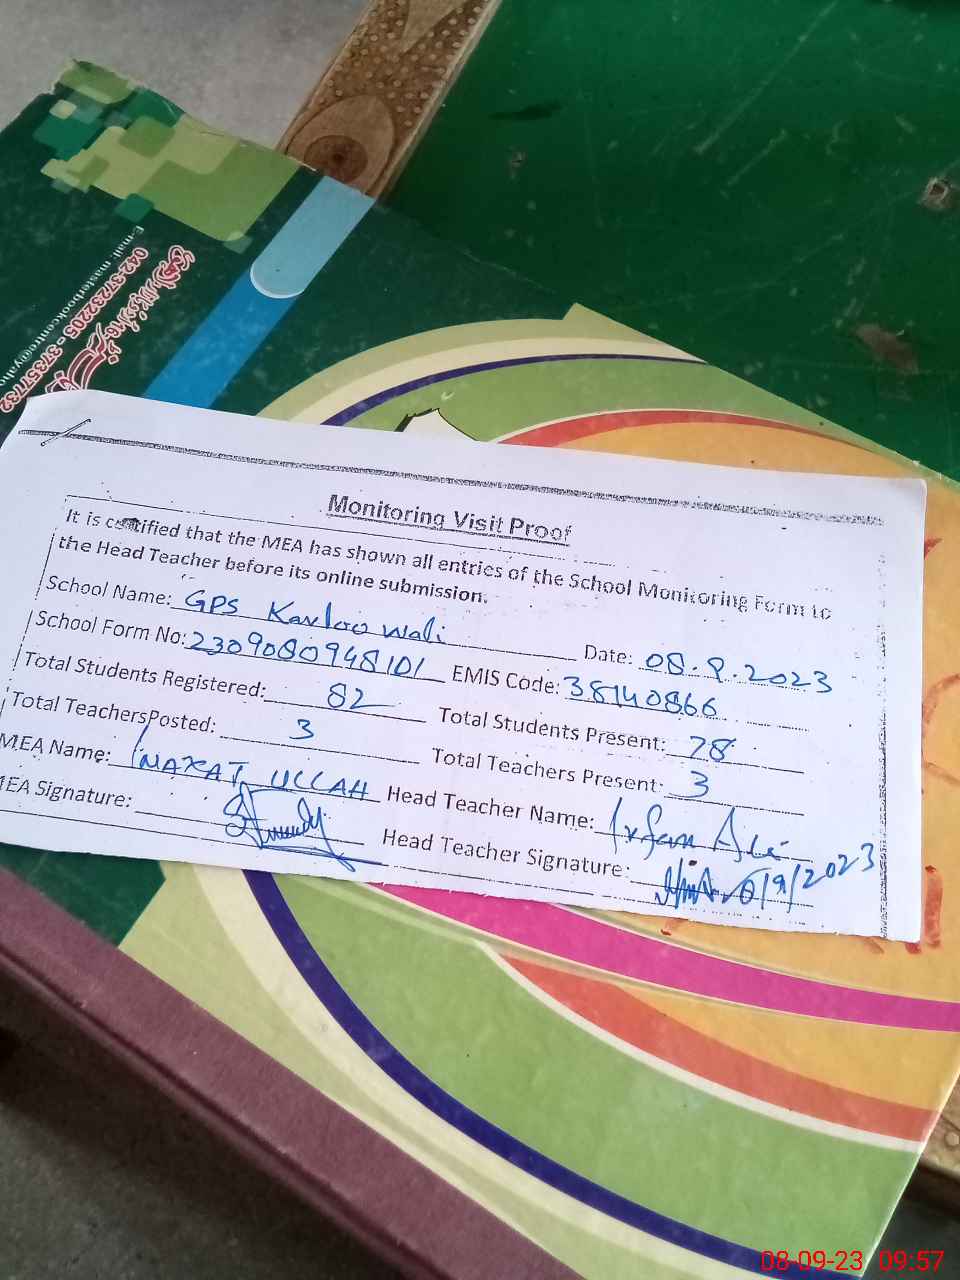 E-mail: masterbookcentre@yaho
042-37232205 - 37357732
Monitoring Visit Proof
It is certified that the MEA has shown all entries of the School Monitoring Form to
the Head Teacher before its online submission.
School Name: GPS Karloo Wali Date: 08.9.2023
School Form No: 2309080948101 EMIS Code: 38140866
Total Students Registered: 82 Total Students Present: 78
Total Teachers Posted: 3 Total Teachers Present: 3
MEA Name: INAYAT ULLAH Head Teacher Name: Irfan Ali
MEA Signature: Head Teacher Signature: /9/2023
08-09-23 09:57